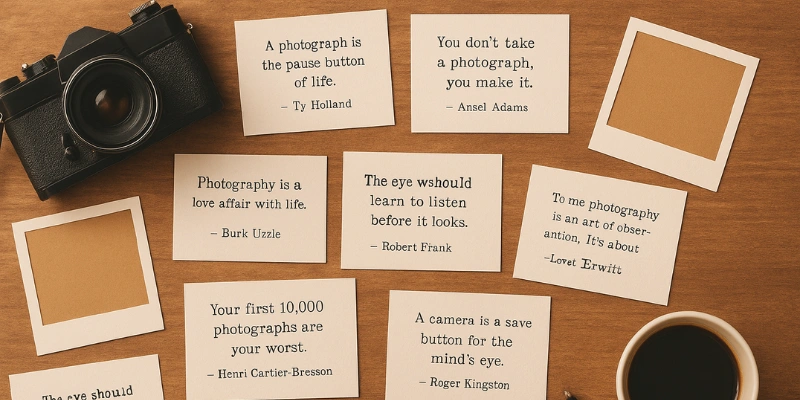 A photograph is
the pause button
of life.
– Ty Holland
You don't take
a photograph,
you make it.
– Ansel Adams
Photography is a
love affair with life.
– Burk Uzzle
The eye wshould
learn to listen
before it looks.
– Robert Frank
To me photography
is an art of obser-
antion, It's about
–Lovet Erwitt
Your first 10,000
photographs are
your worst.
– Henri Cartier-Bresson
A camera is a save
button for the
mind's eye.
– Roger Kingston
The eye should